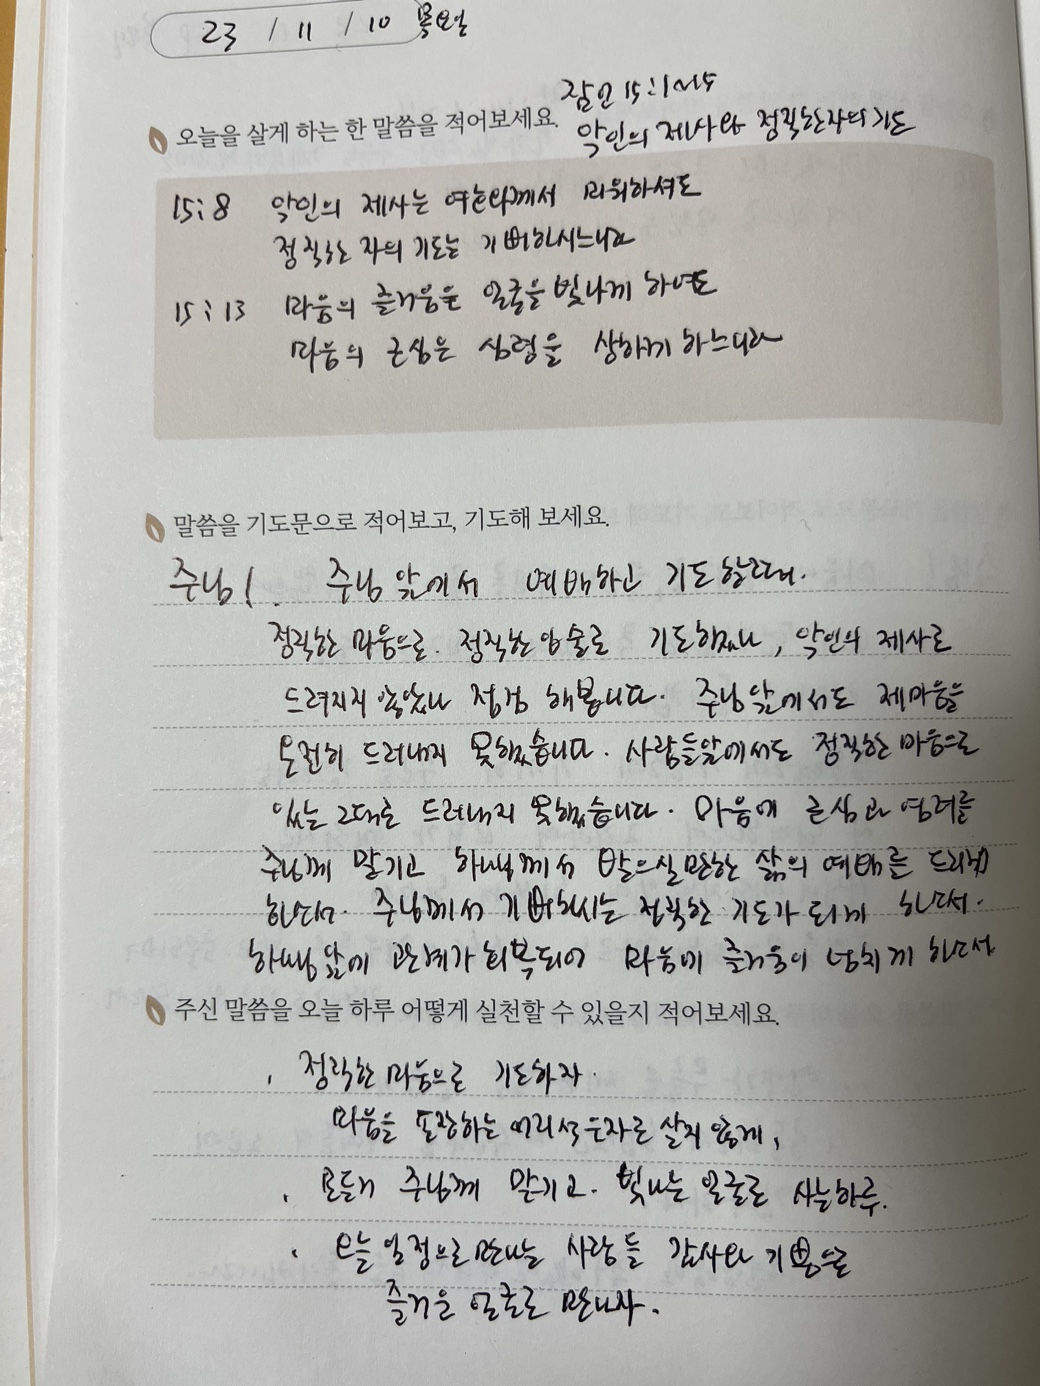 23 / 11 / 10 목요일
잠언 15:1~15
오늘을 살게 하는 한 말씀을 적어보세요.
악인의 제사와 정직한자의 기도
15:8 악인의 제사는 여호와께서 미워하셔도
정직한 자의 기도는 기뻐하시느니라
15:13 마음의 즐거움은 얼굴을 빛나게 하여도
마음의 근심은 심령을 상하게 하느니라
말씀을 기도문으로 적어보고, 기도해 보세요.
주님! 주님 앞에서 예배하고 기도할때.
정직한 마음으로. 정직한 입술로 기도했나, 악인의 제사로
드려지지 않았나 점검 해봅니다. 주님앞에서도 제마음을
온전히 드러내지 못했습니다. 사람들앞에서도 정직한 마음으로
있는 그대로 드러내지 못했습니다. 마음에 근심과 염려를
주님께 맡기고 하나님께서 받으실만한 삶의 예배를 드리게
하소서. 주님께서 기뻐하시는 정직한 기도가 되게 하소서.
하나님 앞에 관계가 회복되어 마음에 즐거움이 넘치게 하소서
주신 말씀을 오늘 하루 어떻게 실천할 수 있을지 적어보세요.
. 정직한 마음으로 기도하자.
마음을 포장하는 어리석은자로 살지 않게,
. 모든거 주님께 맡기고. 빛나는 얼굴로 사는하루.
. 오늘 일정으로 만나는 사람들 감사와 기쁨으로
즐거운 얼굴로 만나자.